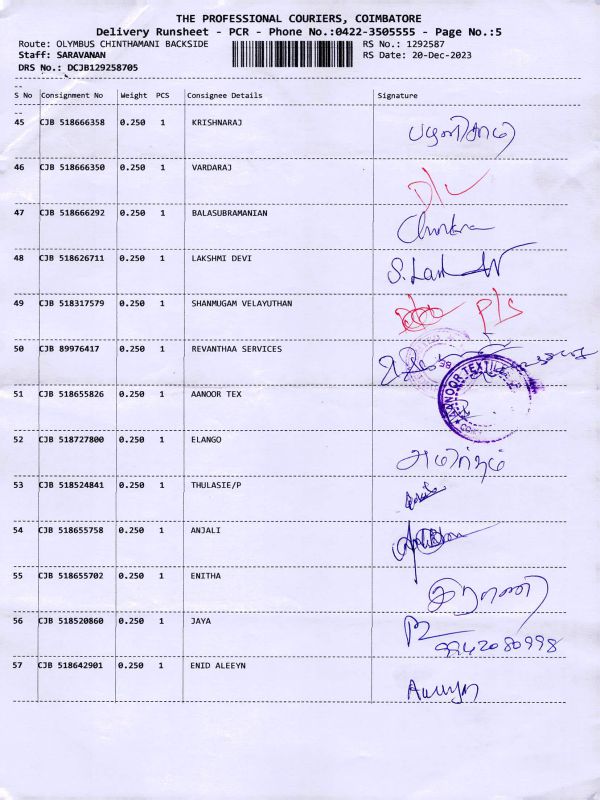 THE PROFESSIONAL COURIERS, COIMBATORE
Delivery Runsheet - PCR - Phone No.:0422-3505555 - Page No.:5
Route: OLYMBUS CHINTHAMANI BACKSIDE RS No.: 1292587
Staff: SARAVANAN RS Date: 20-Dec-2023
DRS No.: DCJB129258705
--
S No Consignment No Weight PCS Consignee Details Signature
--
45 CJB 518666358 0.250 1 KRISHNARAJ
46 CJB 518666350 0.250 1 VARDARAJ D/L
47 CJB 518666292 0.250 1 BALASUBRAMANIAN
48 CJB 518626711 0.250 1 LAKSHMI DEVI
49 CJB 518317579 0.250 1 SHANMUGAM VELAYUTHAN P/S
50 CJB 89976417 0.250 1 REVANTHAA SERVICES
51 CJB 518655826 0.250 1 AANOOR TEX AANOOR TEXTILE
52 CJB 518727800 0.250 1 ELANGO
53 CJB 518524841 0.250 1 THULASIE/P
54 CJB 518655758 0.250 1 ANJALI
55 CJB 518655702 0.250 1 ENITHA
56 CJB 518520860 0.250 1 JAYA
9942080998
57 CJB 518642901 0.250 1 ENID ALEEYN